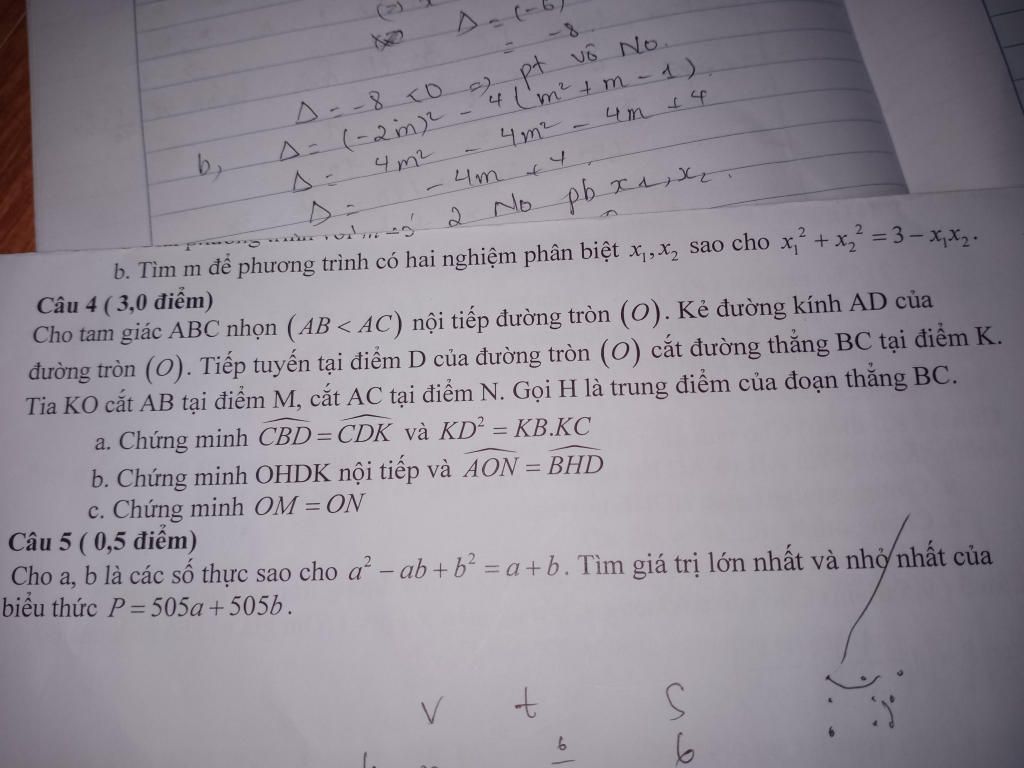 Δ = (-6)
= -8
Δ = -8 < 0 => pt vô No.
b, Δ = (-2m)² - 4(m² + m - 1)
Δ = 4m² - 4m² - 4m + 4
Δ = -4m + 4
2 No pb x1, x2.
b. Tìm m để phương trình có hai nghiệm phân biệt x₁, x₂ sao cho x₁² + x₂² = 3 - x₁x₂.
Câu 4 ( 3,0 điểm)
Cho tam giác ABC nhọn (AB < AC) nội tiếp đường tròn (O). Kẻ đường kính AD của
đường tròn (O). Tiếp tuyến tại điểm D của đường tròn (O) cắt đường thẳng BC tại điểm K.
Tia KO cắt AB tại điểm M, cắt AC tại điểm N. Gọi H là trung điểm của đoạn thẳng BC.
a. Chứng minh \widehat{CBD} = \widehat{CDK} và KD² = KB.KC
b. Chứng minh OHDK nội tiếp và \widehat{AON} = \widehat{BHD}
c. Chứng minh OM = ON
Câu 5 ( 0,5 điểm)
Cho a, b là các số thực sao cho a² - ab + b² = a + b. Tìm giá trị lớn nhất và nhỏ nhất của
biểu thức P = 505a + 505b.
v t S
6 6